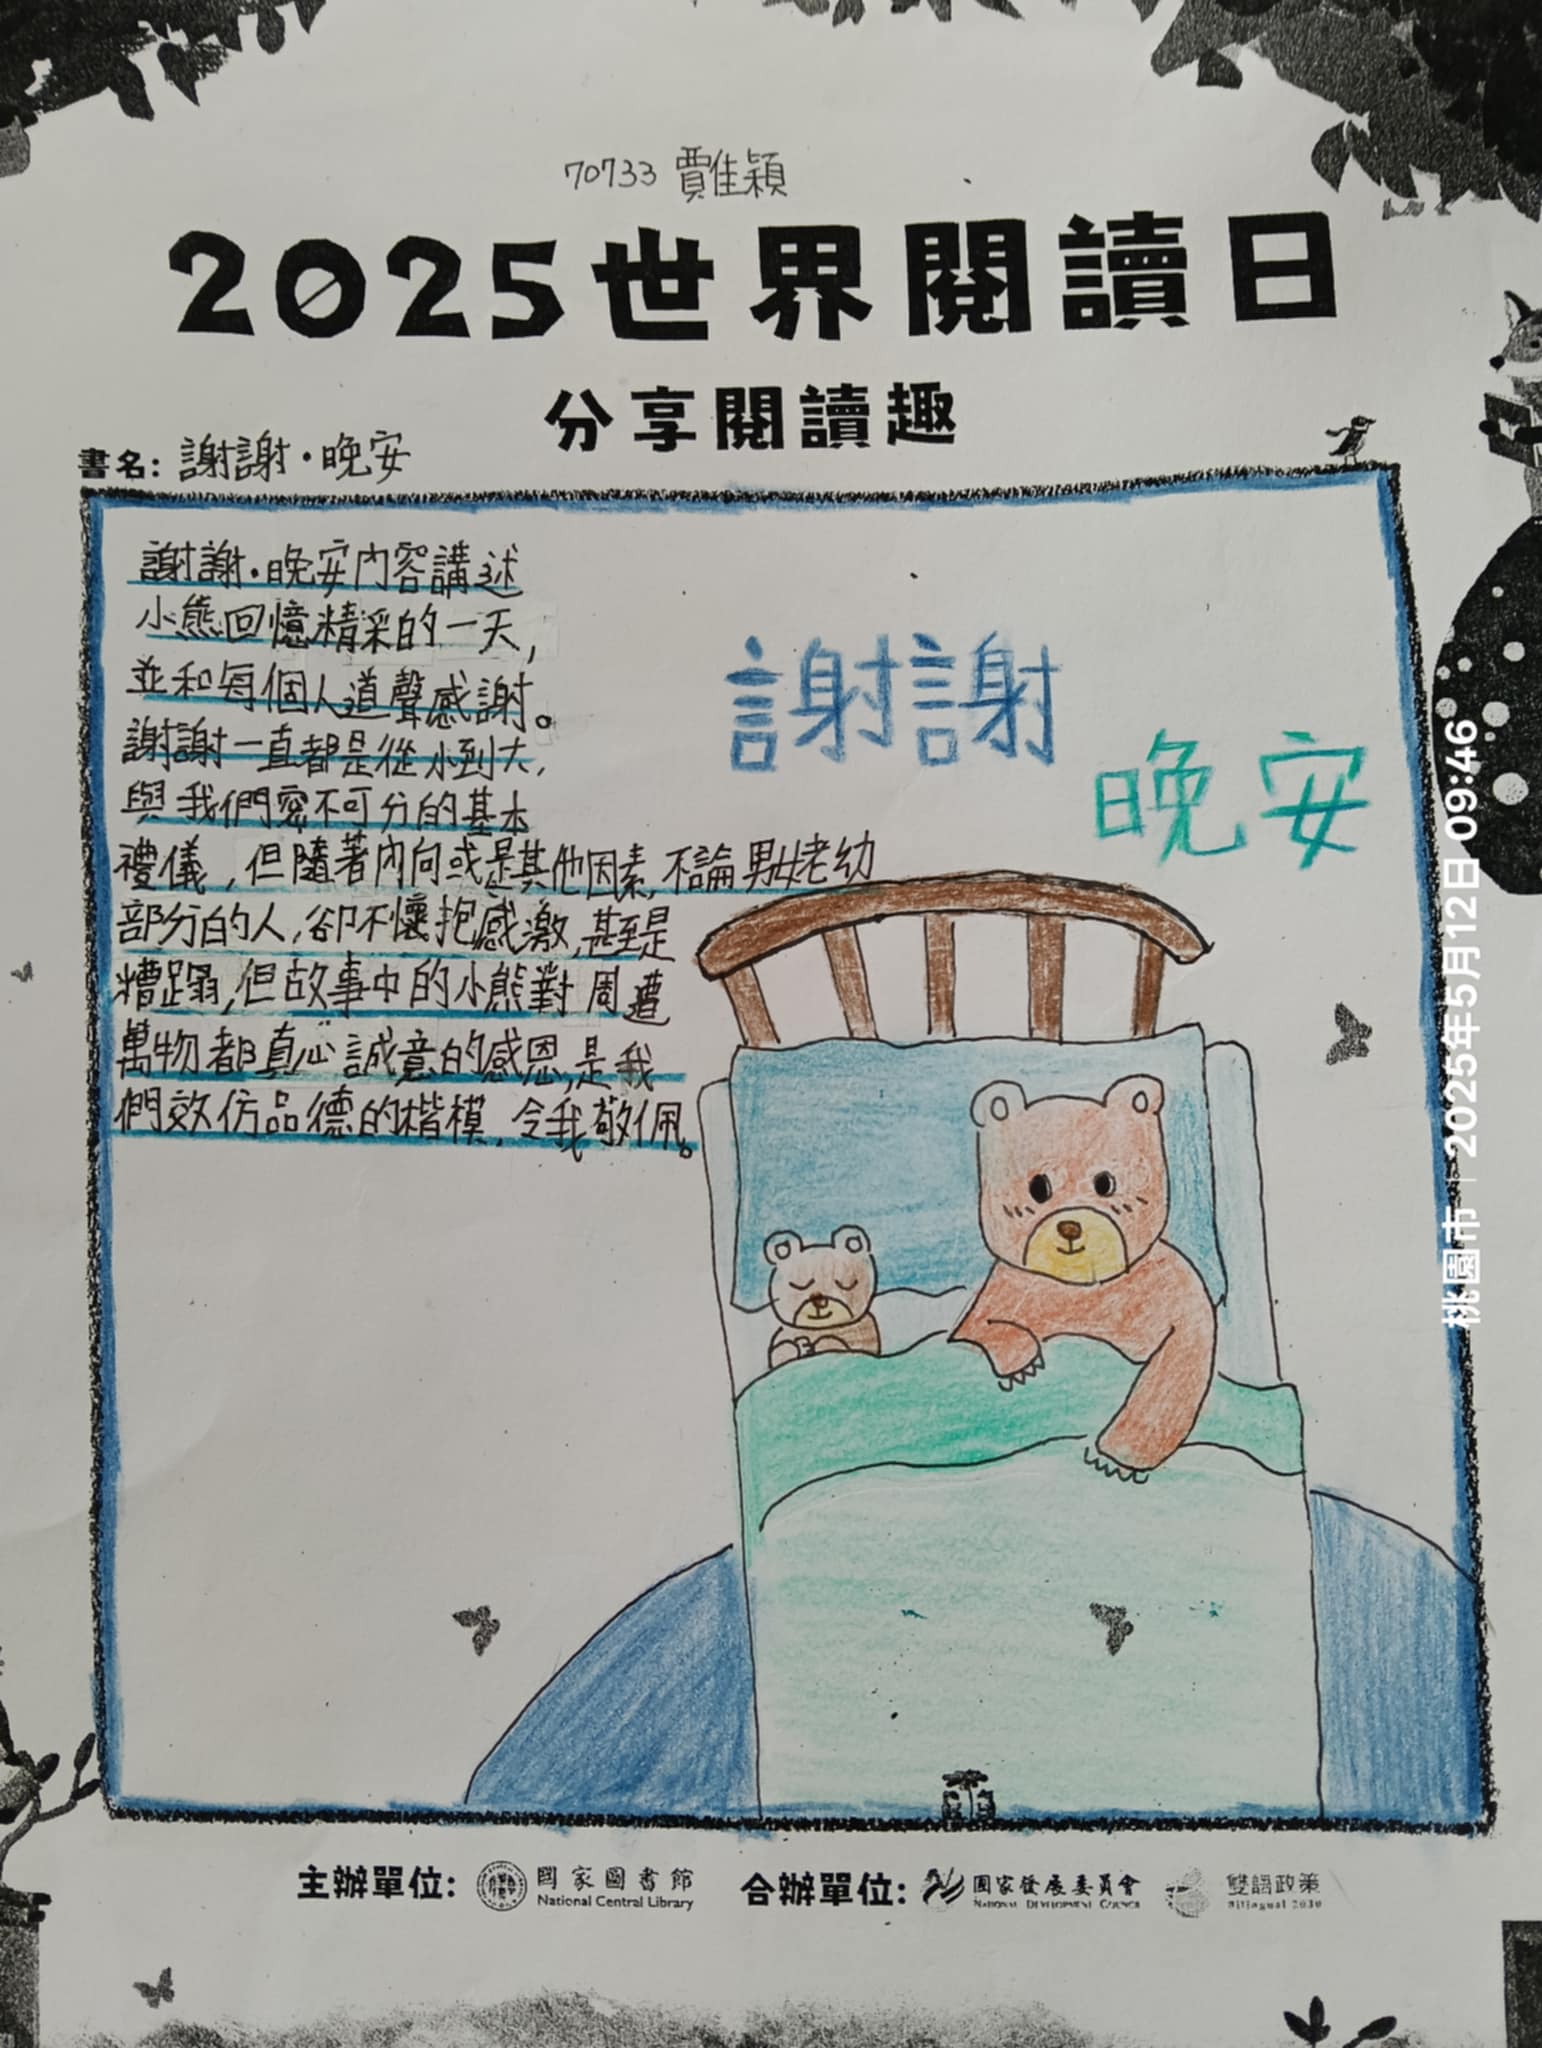 70733 賈佳穎
2025世界閱讀日
分享閱讀趣
書名: 謝謝·晚安
謝謝·晚安內容講述
小熊回憶精采的一天,
並和每個人道聲感謝。
謝謝一直都是從小到大,
與我們密不可分的基本
禮儀,但隨著內向或是其他因素,不論男女老幼
部分的人,卻不懷抱感激,甚至是
糟蹋,但故事中的小熊對周遭
萬物都真心誠意的感恩,是我
們效仿品德的楷模,令我敬佩。
謝謝
晚安
主辦單位: 國家圖書館 合辦單位: 國家發展委員會 雙語政策
National Central Library NATIONAL DEVELOPMENT COUNCIL Bilingual 2030
桃園市 | 2025年5月12日 09:46